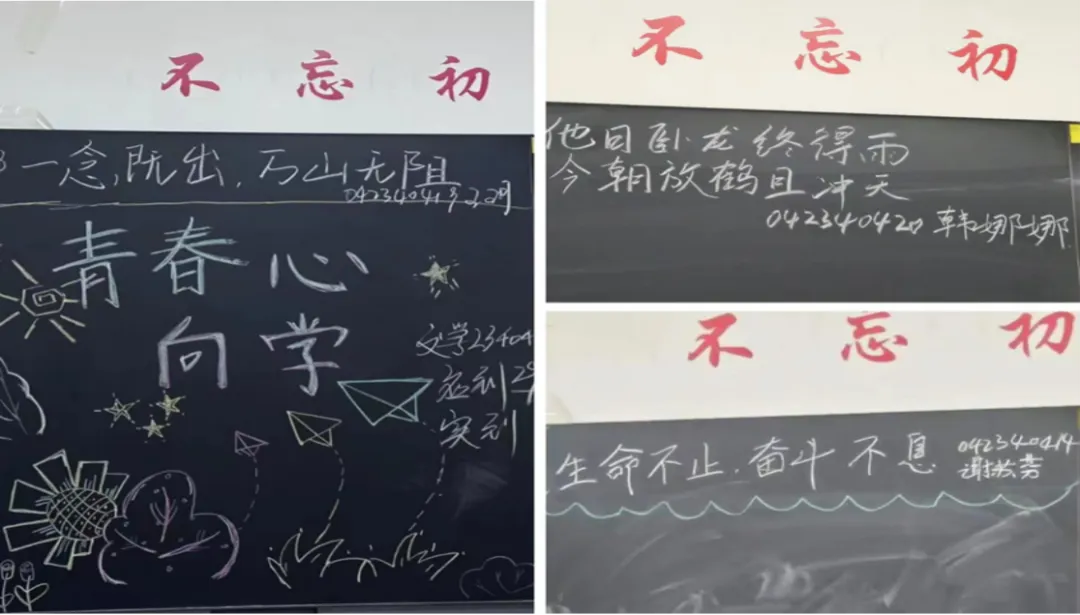 不忘初
一念既出,万山无阻
青春心
向学
文学23404
应到
实到
不忘初
他日卧龙终得雨
今朝放鹤且冲天
042340420 韩娜娜
不忘初
生命不止.奋斗不息
042340414